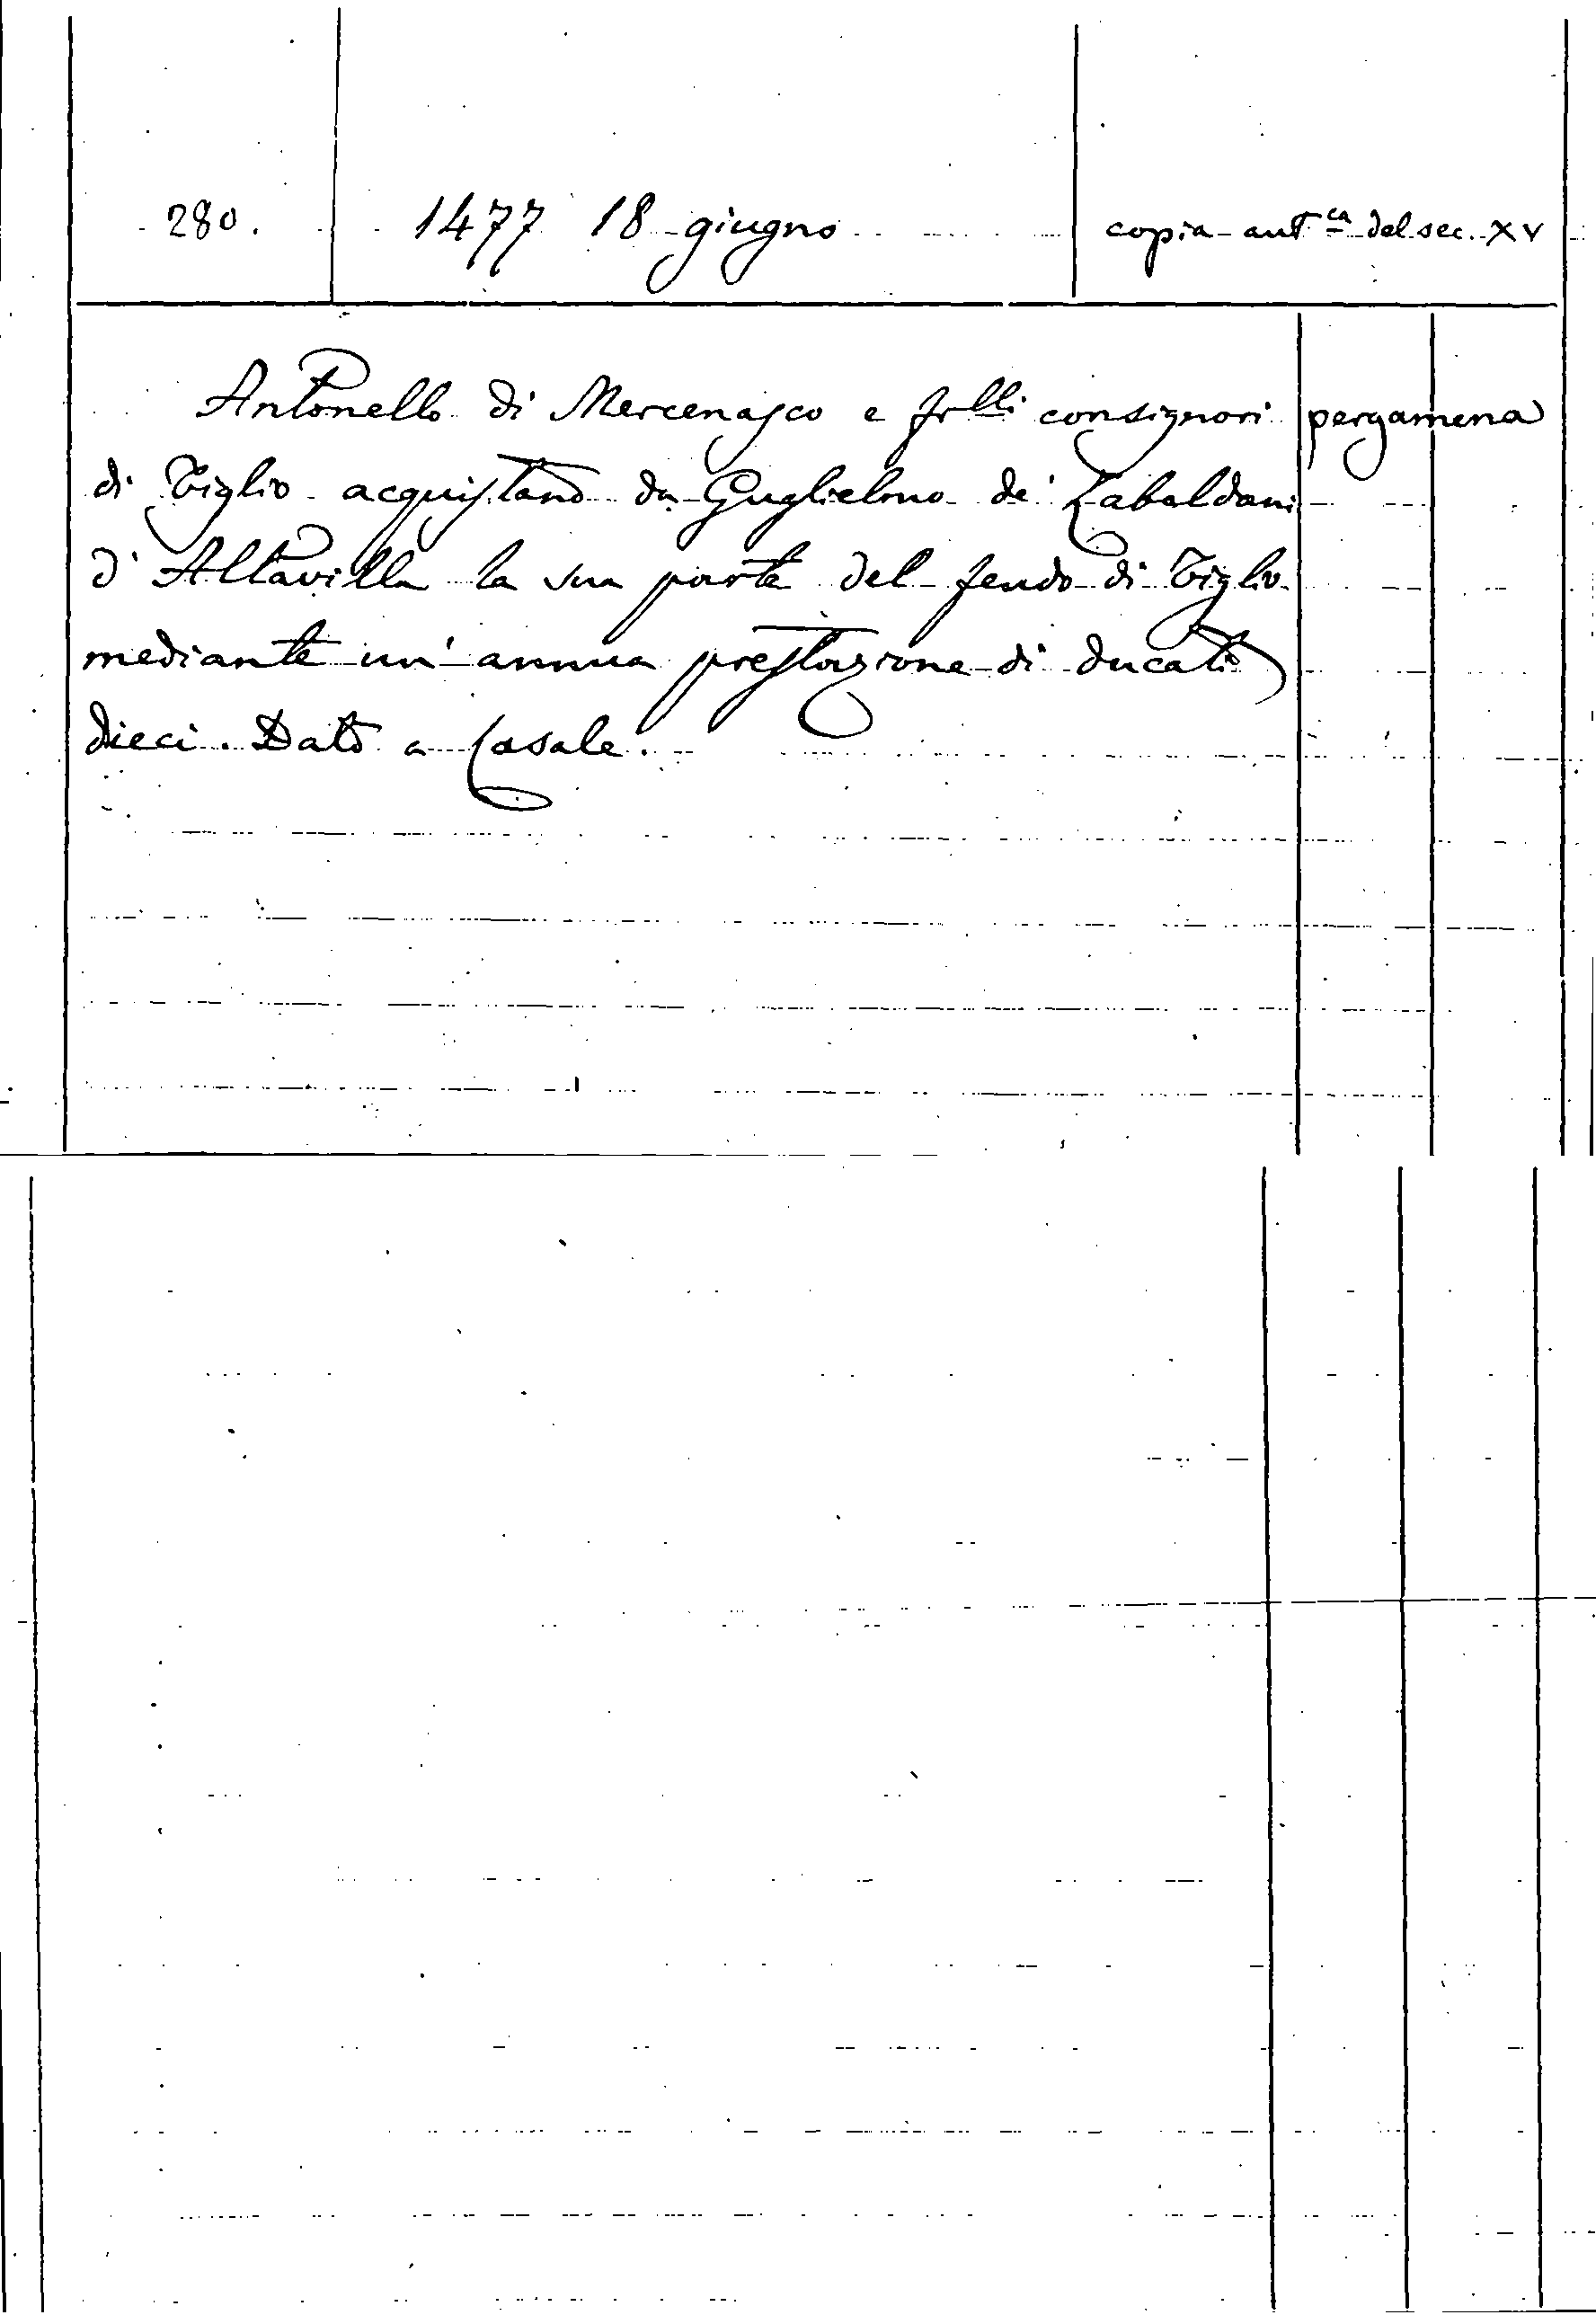 280.
1477 18 giugno
copia aut.ca del sec. XV
Antonello di Mercenasco e frlli consignori
pergamena
di Tiglio acquistano da Guglielmo de' Zabaldani
d'Altavilla la sua parte del feudo di Tiglio
mediante un'annua prestazione di ducati
dieci. Dato a Casale.